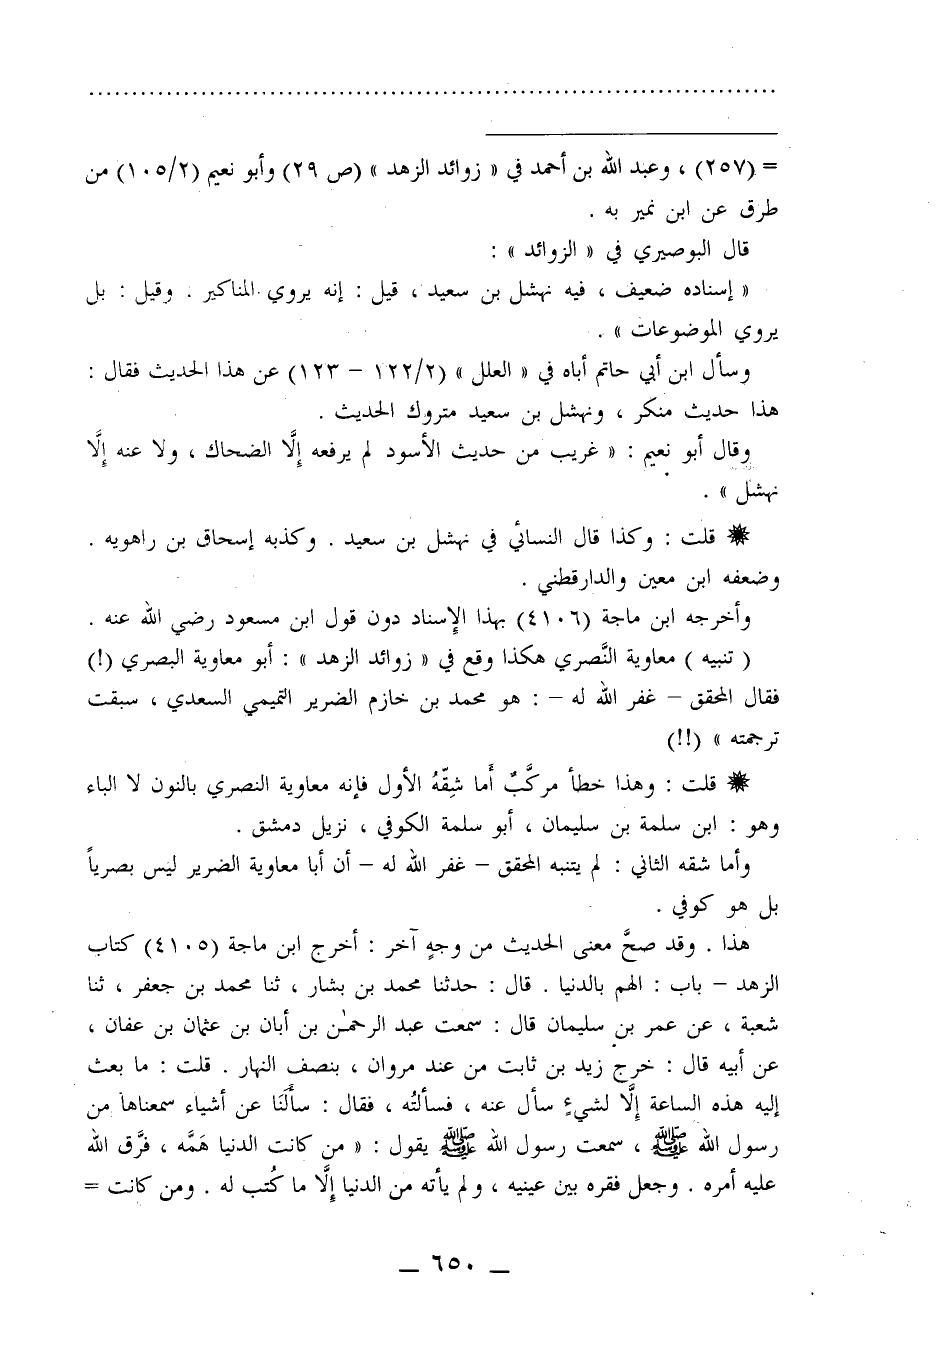 ................................................................................
= (٢٥٧) ، وعبد الله بن أحمد في « زوائد الزهد » (ص ٢٩) وأبو نعيم (١٠٥/٢) من
طرق عن ابن نمير به .
قال البوصيري في « الزوائد » :
« إسناده ضعيف ، فيه نهشل بن سعيد ، قيل : إنه يروي المناكير . وقيل : بل
يروي الموضوعات » .
وسأل ابن أبي حاتم أباه في « العلل » (١٢٢/٢ – ١٢٣) عن هذا الحديث فقال :
هذا حديث منكر ، ونهشل بن سعيد متروك الحديث .
وقال أبو نعيم : « غريب من حديث الأسود لم يرفعه إلَّا الضحاك ، ولا عنه إلَّا
نهشل » .
✸ قلت : وكذا قال النسائي في نهشل بن سعيد . وكذبه إسحاق بن راهويه .
وضعفه ابن معين والدارقطني .
وأخرجه ابن ماجة (٤١٠٦) بهذا الإسناد دون قول ابن مسعود رضي الله عنه .
( تنبيه ) معاوية النَّصري هكذا وقع في « زوائد الزهد » : أبو معاوية البصري (!)
فقال المحقق – غفر الله له – : هو محمد بن خازم الضرير التميمي السعدي ، سبقت
ترجمته » (!!)
✸ قلت : وهذا خطأ مركَّبٌ أما شِقّهُ الأول فإنه معاوية النصري بالنون لا الباء
وهو : ابن سلمة بن سليمان ، أبو سلمة الكوفي ، نزيل دمشق .
وأما شقه الثاني : لم يتنبه المحقق – غفر الله له – أن أبا معاوية الضرير ليس بصرياً
بل هو كوفي .
هذا . وقد صحَّ معنى الحديث من وجهٍ آخر : أخرج ابن ماجة (٤١٠٥) كتاب
الزهد – باب : الهم بالدنيا . قال : حدثنا محمد بن بشار ، ثنا محمد بن جعفر ، ثنا
شعبة ، عن عمر بن سليمان قال : سمعت عبد الرحمٰن بن أبان بن عثمان بن عفان ،
عن أبيه قال : خرج زيد بن ثابت من عند مروان ، بنصف النهار . قلت : ما بعث
إليه هذه الساعة إلَّا لشيءٍ سأل عنه ، فسألتُه ، فقال : سألَنَا عن أشياء سمعناها من
رسول الله ﷺ ، سمعت رسول الله ﷺ يقول : « من كانت الدنيا هَمَّه ، فرَّق الله
عليه أمره . وجعل فقره بين عينيه ، ولم يأته من الدنيا إلَّا ما كُتب له . ومن كانت =
— ٦٥٠ —